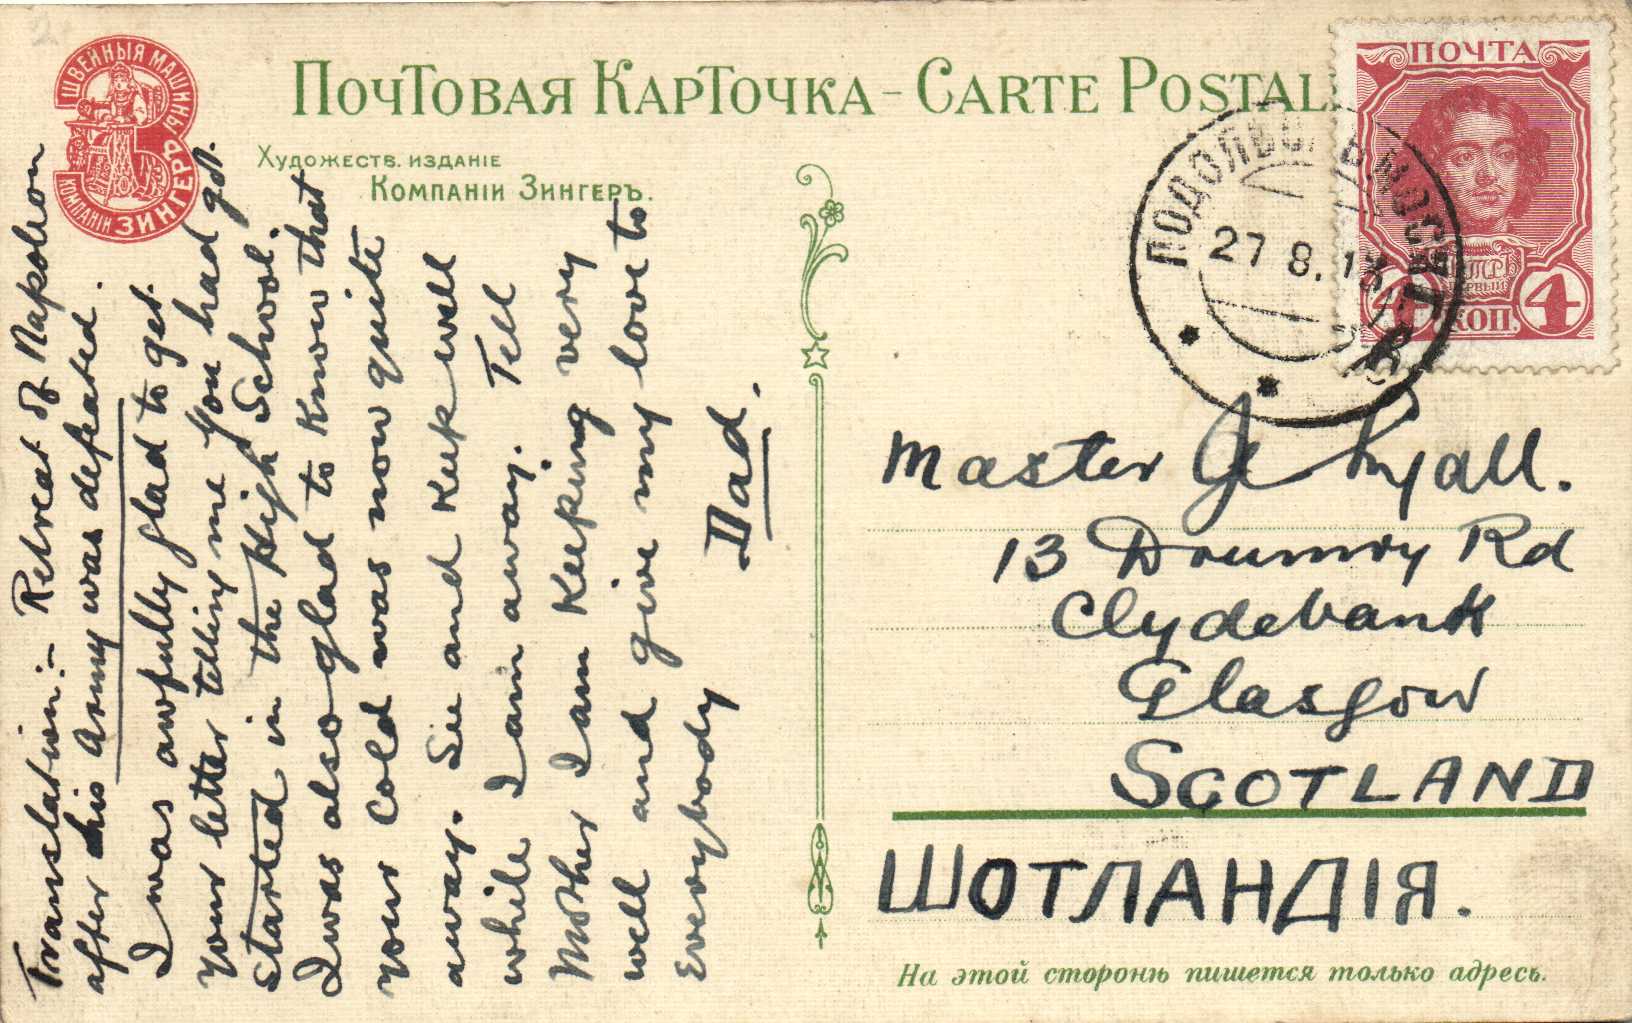 ШВЕЙНЫЯ МАШИНЫ
КОМПАНІИ ЗИНГЕРЪ
ПОЧТОВАЯ КАРТОЧКА - CARTE POSTAL
ХУДОЖЕСТВ. ИЗДАНІЕ
КОМПАНІИ ЗИНГЕРЪ.
ПОЧТА
4 КОП. 4
27 8.13
Translation:- Retreat of Napoleon
after his army was defeated.
I was awfully glad to get
your letter telling me you had got
started in the High School.
I was also glad to know that
your cold was now quite
away. See and keep well
while I am away. Tell
Mother I am keeping very
well and give my love to
Everybody
Dad.
Master J Lyall.
13 Drumry Rd
Clydebank
Glasgow
SCOTLAND
ШОТЛАНДІЯ.
На этой сторонѣ пишется только адресъ.